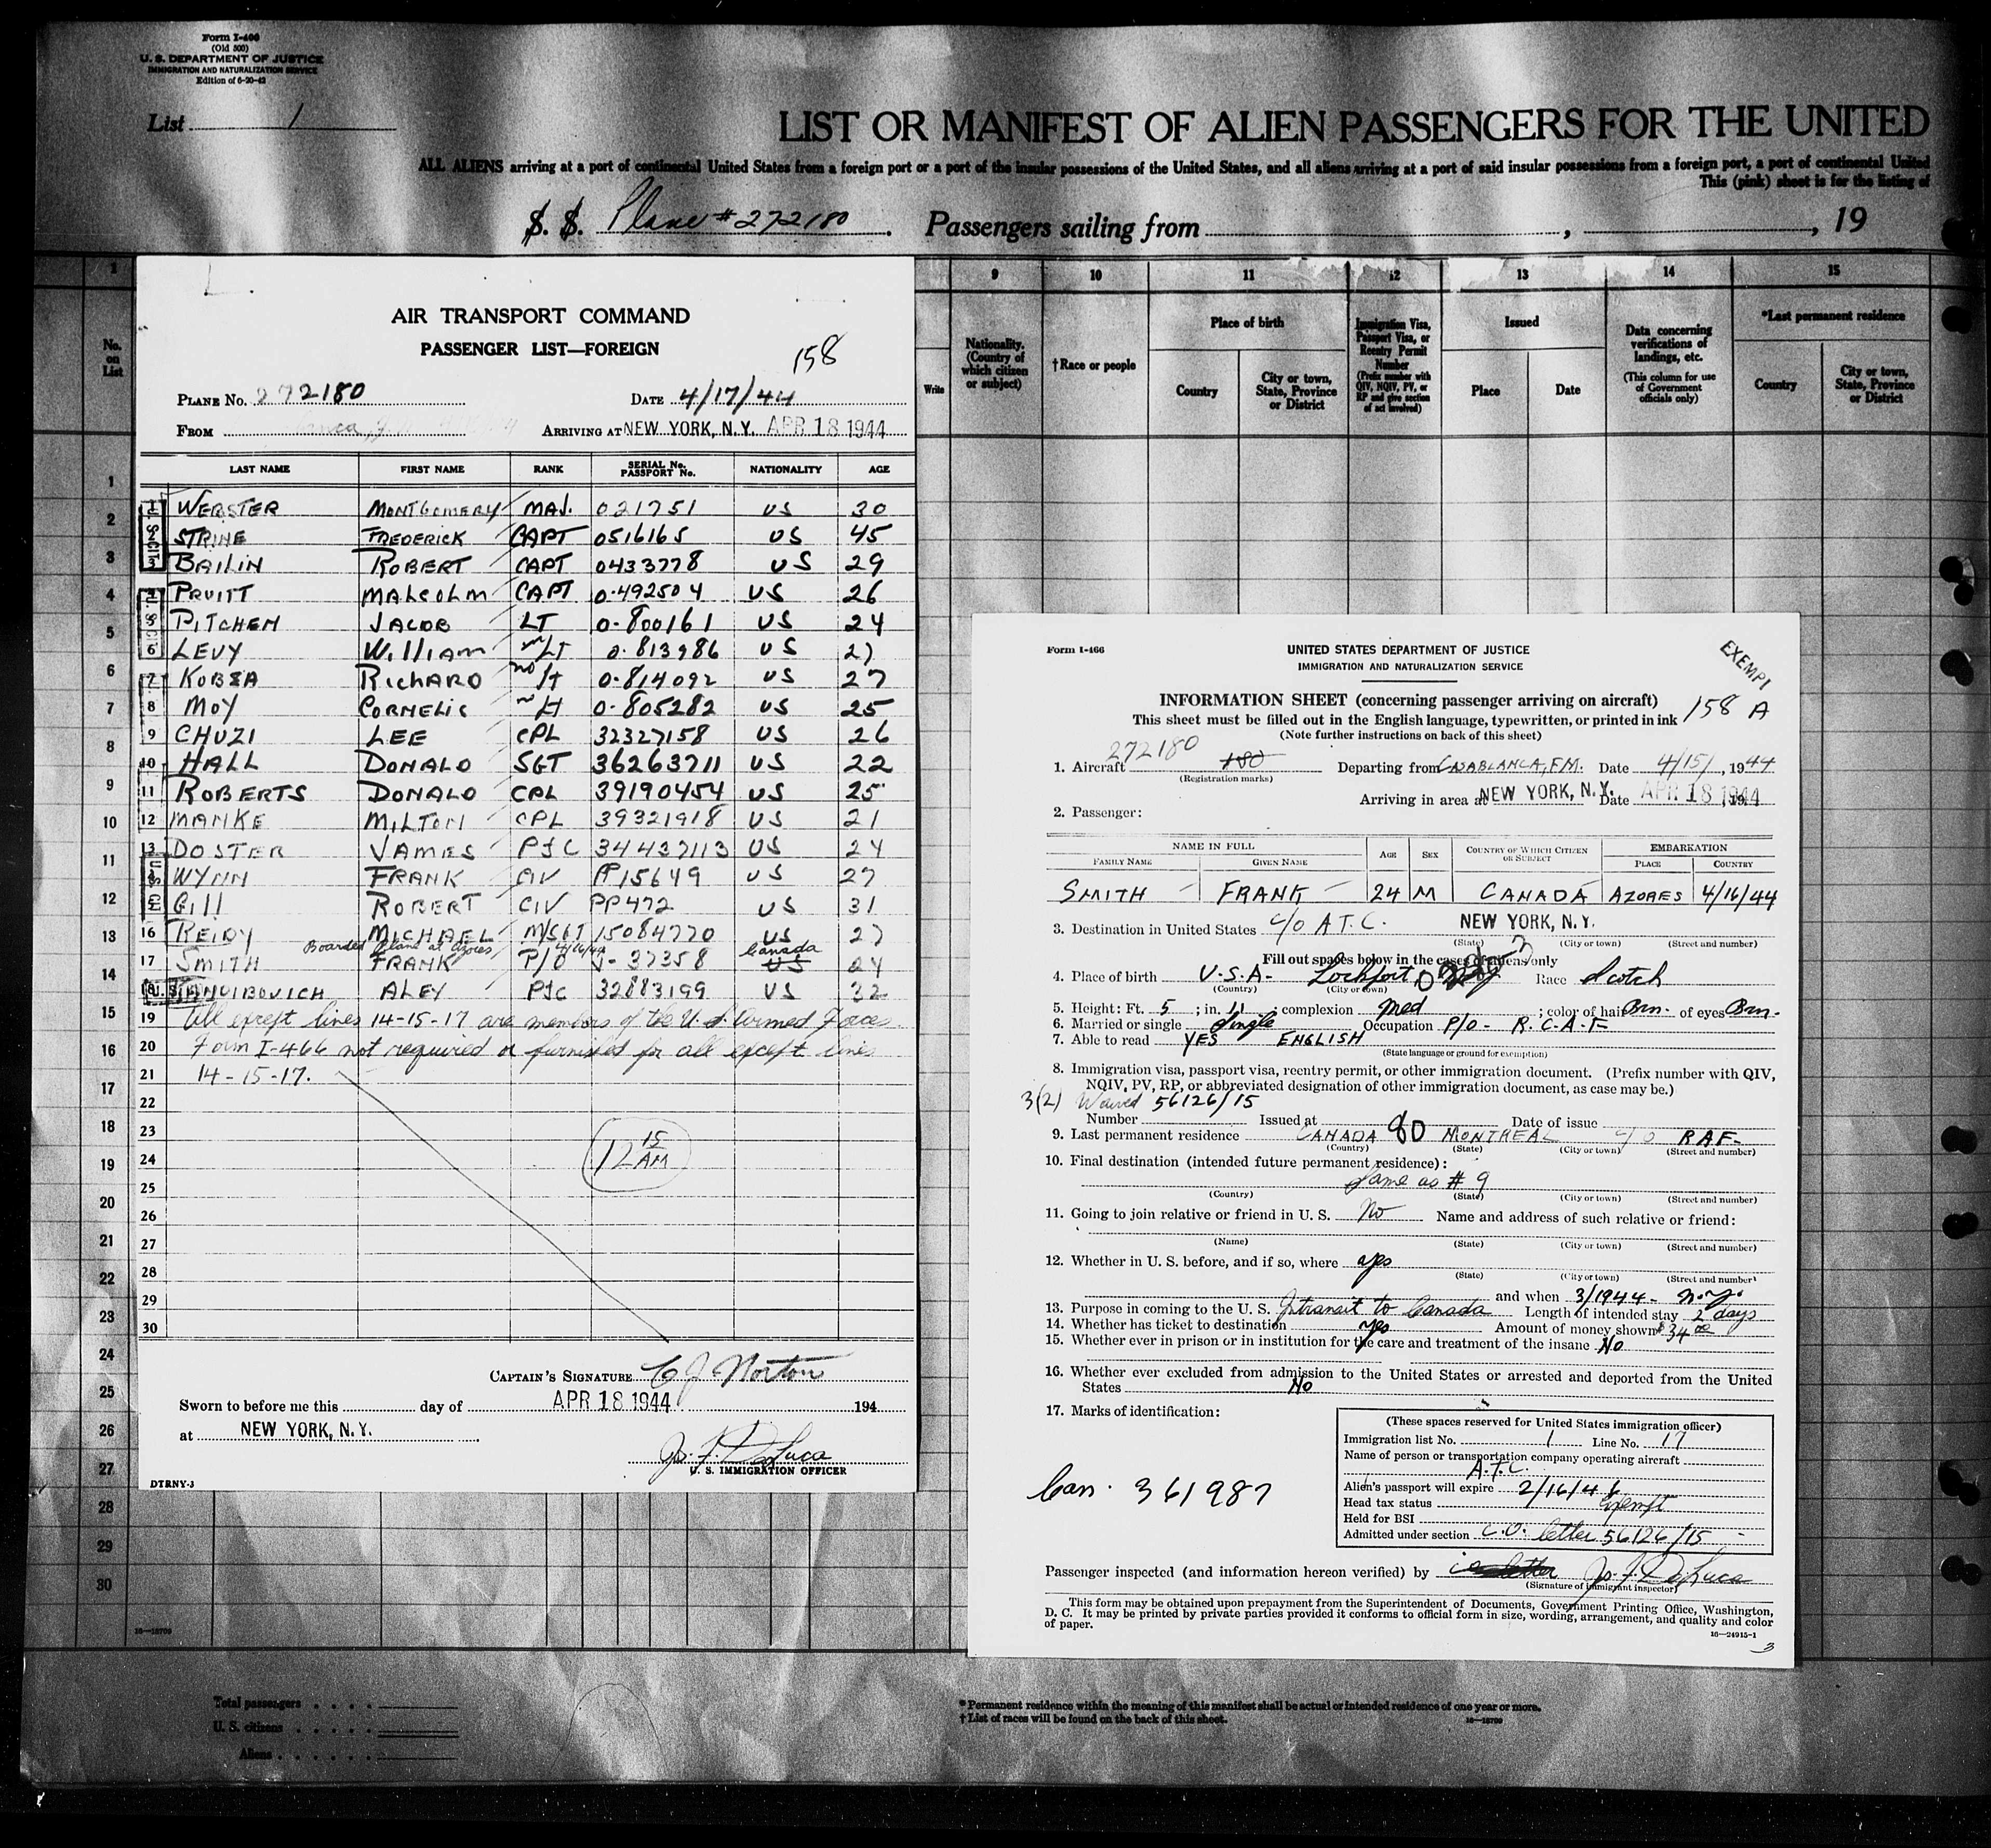 Form I-466
(Old 500)
U. S. DEPARTMENT OF JUSTICE
IMMIGRATION AND NATURALIZATION SERVICE
Edition of 6-20-42
List 1
LIST OR MANIFEST OF ALIEN PASSENGERS FOR THE UNITED
ALL ALIENS arriving at a port of continental United States from a foreign port or a port of the insular possessions of the United States, and all aliens arriving at a port of said insular possessions from a foreign port, a port of continental United
This (pink) sheet is for the listing of
S. S. Plane # 272180. Passengers sailing from , , 19
1 9 10 11 12 13 14 15
No. on List
Write
Nationality. (Country of which citizen or subject)
†Race or people
Place of birth
Country
City or town, State, Province or District
Immigration Visa, Passport Visa, or Reentry Permit Number
(Prefix number with QIV, NQIV, PV, or RP and give section of act involved)
Issued
Place
Date
Data concerning verifications of landings, etc.
(This column for use of Government officials only)
*Last permanent residence
Country
City or town, State, Province or District
1
2
3
4
5
6
7
8
9
10
11
12
13
14
15
16
17
18
19
20
21
22
23
24
25
26
27
28
29
30
AIR TRANSPORT COMMAND
PASSENGER LIST—FOREIGN
158
PLANE No. 272180 DATE 4/17/44
FROM ARRIVING AT NEW YORK, N.Y. APR 18 1944
LAST NAME FIRST NAME RANK SERIAL No. PASSPORT No. NATIONALITY AGE
WEBSTER MONTGOMERY MAJ. 021751 US 30
STRINE FREDERICK CAPT 0516165 US 45
BAILIN ROBERT CAPT 0433778 US 29
PRUITT MALCOLM CAPT 0-492504 US 26
PITCHEN JACOB LT 0-800161 US 24
6 LEVY WILLIAM LT 0-813986 US 27
7 RICHARD Lt 0-814092 US 27
8 MOY CORNELIC Lt 0-805282 US 25
9 CHUZI LEE CPL 32327158 US 26
10 HALL DONALD SGT 36263711 US 22
11 ROBERTS DONALD CPL 39190454 US 25
12 MANKE MILTON CPL 39321918 US 21
13 DOSTER JAMES PFC 34437113 US 24
WYNN FRANK CIV PP15649 US 27
GILL ROBERT CIV PP472 US 31
16 REIDY MICHAEL M/SGT 15084770 US 27
Boarded Plane at Azores 4/16/44 Canada
17 SMITH FRANK P/O J-37358 US 24
ALEY PFC 32883199 US 32
19 All except lines 14-15-17 are members of the U. S. Armed Forces.
20 Form I-466 not required or furnished for all except lines
21 14-15-17.
22
23
24 12 15 AM
25
26
27
28
29
30
CAPTAIN'S SIGNATURE C J Norton
Sworn to before me this day of APR 18 1944 194
at NEW YORK, N.Y.
Jo. F. DeLuca
U. S. IMMIGRATION OFFICER
DTRNY-3
Form I-466
UNITED STATES DEPARTMENT OF JUSTICE
IMMIGRATION AND NATURALIZATION SERVICE
EXEMPT
INFORMATION SHEET (concerning passenger arriving on aircraft)
158 A
This sheet must be filled out in the English language, typewritten, or printed in ink
(Note further instructions on back of this sheet)
1. Aircraft 272180 180 Departing from CASABLANCA, F.M. Date 4/15/, 1944
(Registration marks)
Arriving in area at NEW YORK, N.Y. Date APR 18 1944
2. Passenger:
NAME IN FULL AGE SEX COUNTRY OF WHICH CITIZEN OR SUBJECT EMBARKATION
FAMILY NAME GIVEN NAME PLACE COUNTRY
SMITH FRANK 24 M CANADA AZORES 4/16/44
3. Destination in United States c/o A.T.C. NEW YORK, N.Y.
(State) (City or town) (Street and number)
Fill out spaces below in the cases of aliens only
4. Place of birth U.S.A- Lockport Race Scotch
(Country) (City or town)
5. Height: Ft. 5; in. 11; complexion Med; color of hair Brn. of eyes Brn.
6. Married or single Single Occupation P/O - R.C.A.F
7. Able to read YES ENGLISH
(State language or ground for exemption)
8. Immigration visa, passport visa, reentry permit, or other immigration document. (Prefix number with QIV,
NQIV, PV, RP, or abbreviated designation of other immigration document, as case may be.)
3(2) Waived 56126/15
Number Issued at Date of issue
9. Last permanent residence CANADA 80 MONTREAL c/o RAF-
(Country) (State) (City or town) (Street and number)
10. Final destination (intended future permanent residence):
Same as # 9
(Country) (State) (City or town) (Street and number)
11. Going to join relative or friend in U. S. No Name and address of such relative or friend:
(Name) (State) (City or town) (Street and number)
12. Whether in U. S. before, and if so, where yes
(State) (City or town) (Street and number)
and when 3/1944 - N.Y.
13. Purpose in coming to the U. S. Intransit to Canada Length of intended stay 2 days
14. Whether has ticket to destination yes Amount of money shown $34 00
15. Whether ever in prison or in institution for the care and treatment of the insane No
16. Whether ever excluded from admission to the United States or arrested and deported from the United
States No
17. Marks of identification:
Can. 361987
(These spaces reserved for United States immigration officer)
Immigration list No. 1 Line No. 17
Name of person or transportation company operating aircraft
A.T.C.
Alien's passport will expire 2/16/46
Head tax status Exempt
Held for BSI
Admitted under section C.O. letter 56126/15 -
Passenger inspected (and information hereon verified) by Jo. F. DeLuca
(Signature of immigrant inspector)
This form may be obtained upon prepayment from the Superintendent of Documents, Government Printing Office, Washington,
D. C. It may be printed by private parties provided it conforms to official form in size, wording, arrangement, and quality and color
of paper.
16—24915-1
3
16—18709
Total passengers
U. S. citizens
Aliens
*Permanent residence within the meaning of this manifest shall be actual or intended residence of one year or more.
†List of races will be found on the back of this sheet.
16—18709